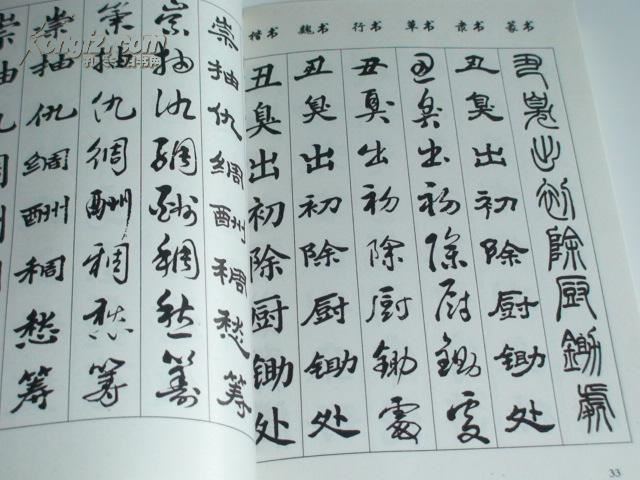 崇抽仇绸酬稠愁筹
崇抽仇绸酬稠愁筹
崇抽仇绸酬稠愁籌
崇抽仇绸酬稠愁筹
楷书 魏书 行书 草书 隶书 篆书
丑臭出初除厨锄处
丑臭出初除厨锄处
丑臭出初除厨锄處
丑臭出初除厨鋤處
丑臭出初除厨锄处
丑臭出初除厨鋤處
33